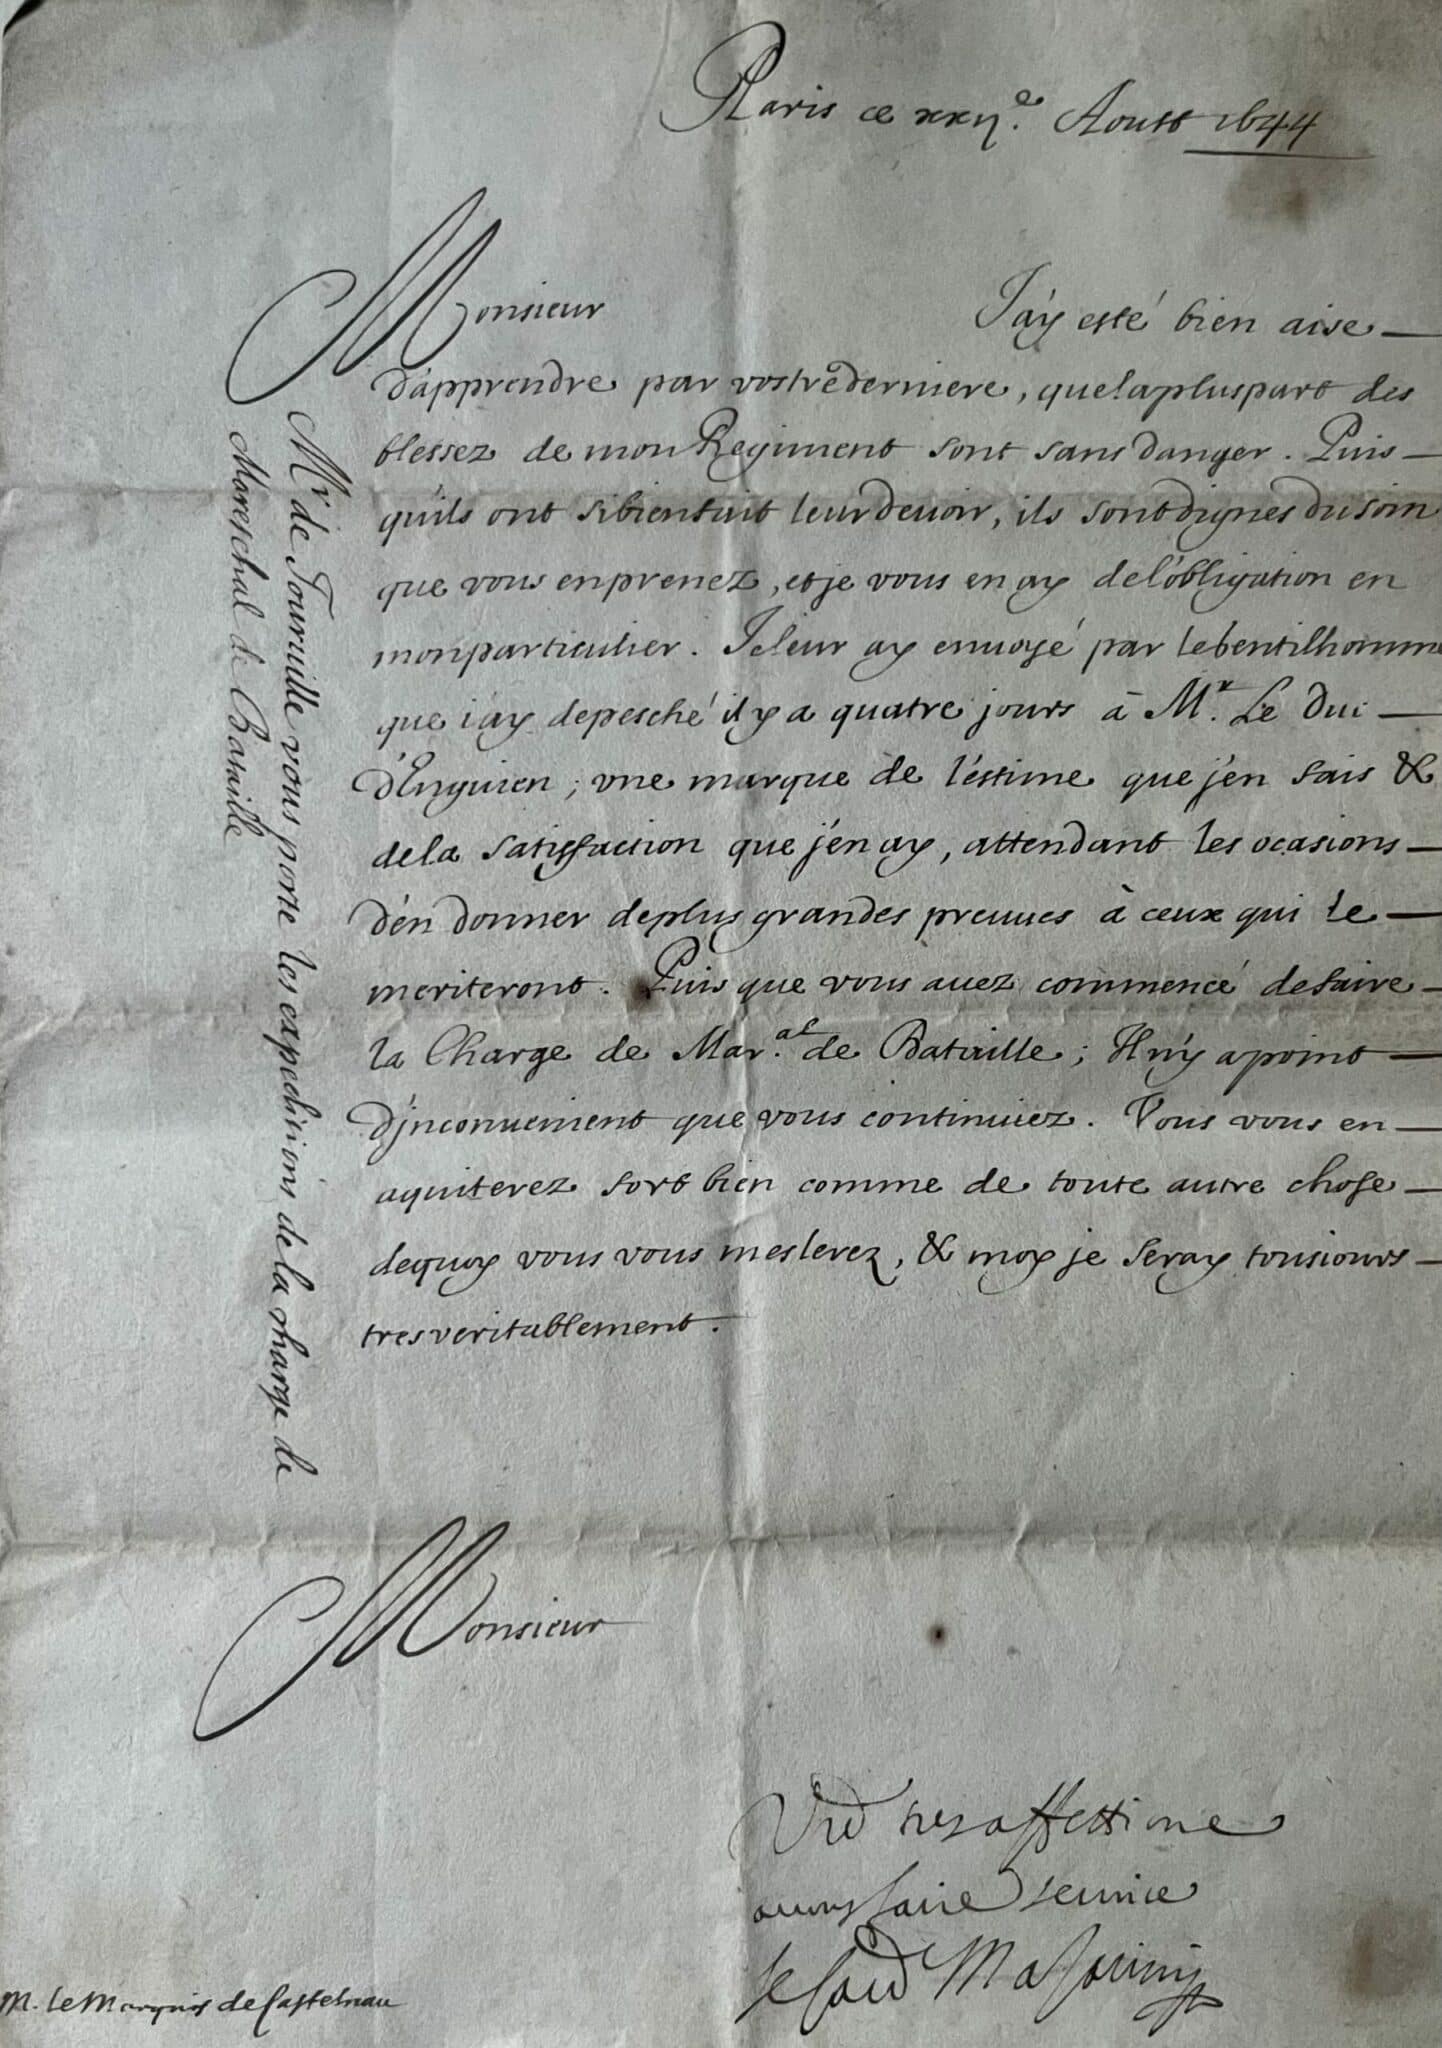 Paris ce xxij.e Aoust 1644
Monsieur
J'ay esté bien aise
d'apprendre par vostre derniere, que la pluspart des
blessez de mon Regiment sont sans danger. Puis
qu'ils ont si bien fait leur devoir, ils sont dignes du soin
que vous en prenez, et je vous en ay de l'obligation en
mon particulier. Je leur ay envoyé par le Gentilhomme
que i'ay depesché il y a quatre jours à Mr. Le Duc
d'Enguien; vne marque de l'estime que j'en fais &
de la satisfaction que j'en ay, attendant les ocasions
d'en donner de plus grandes preuues à ceux qui le
meriteront. Puis que vous auez commencé de faire
la Charge de Mar.al de Bataille; Il n'y a point
d'jnconuenient que vous continuiez. Vous vous en
aquiterez fort bien comme de toute autre chose
dequoy vous vous meslerez, & moy je seray tousiours
tres veritablement.
Mr de Touruille vous porte les expeditions de la charge de
Mareschal de Bataille
Monsieur
Vre tres affettione
a vous faire seruice
le Card Mazarini
M. le Marquis de Castelnau